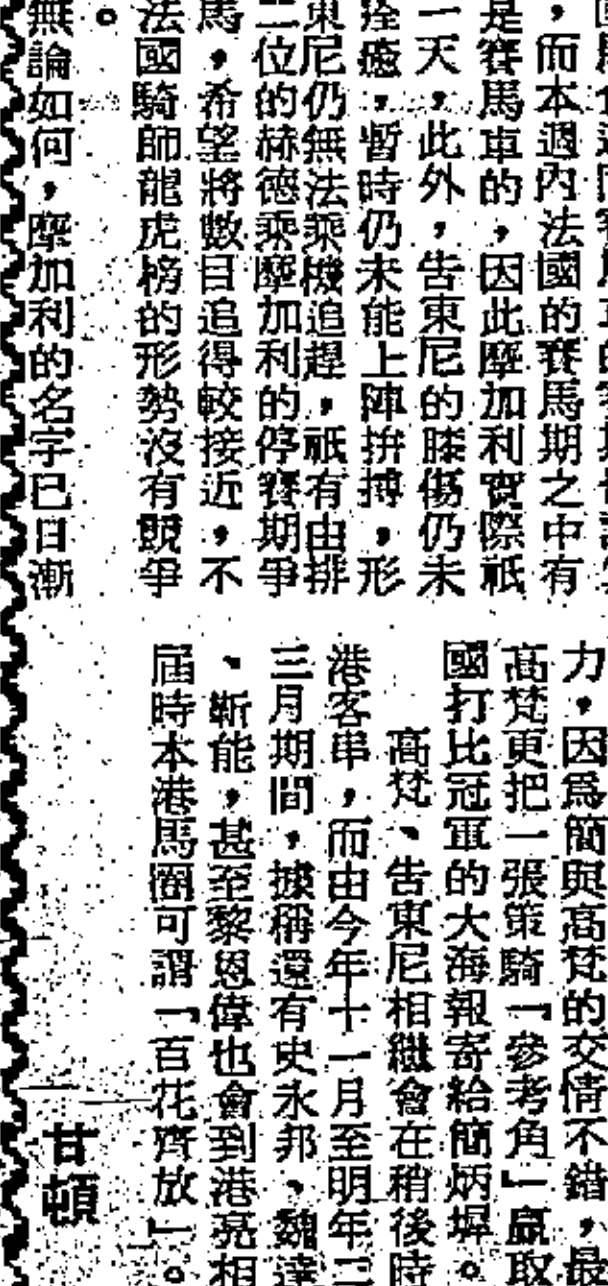 ，而本週內法國的賽馬期之中有
是賽馬車的，因此摩加利實際祇
一天，此外，告東尼的膝傷仍未
痊癒，暫時仍未能上陣拚搏，形
東尼仍無法乘機追趕，祇有由排
二位的赫德乘摩加利的停賽期爭
馬，希望將數目追得較接近，不
法國騎師龍虎榜的形勢沒有競爭
。
無論如何，摩加利的名字已日漸
力，因為簡與高梵的交情不錯，最
高梵更把一張策騎「參考角」贏取
國打比冠軍的大海報寄給簡炳墀。
高梵、告東尼相繼會在稍後時
港客串，而由今年十一月至明年二
三月期間，據稱還有史永邦、魏達
、靳能，甚至黎恩偉也會到港亮相
屆時本港馬圈可謂「百花齊放」。
甘頓